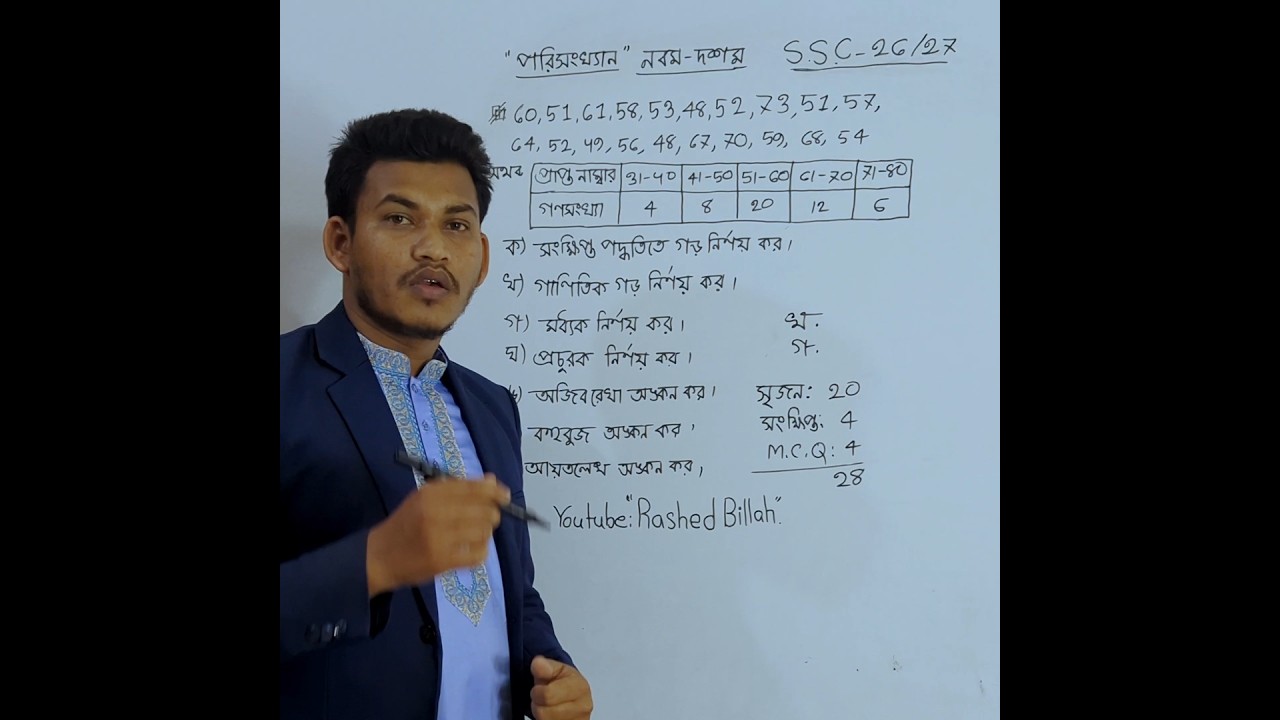 "পরিসংখ্যান" নবম-দশম S.S.C-26/27
60, 51, 61, 58, 53, 48, 52, 73, 51, 57,
64, 52, 49, 56, 48, 67, 70, 59, 68, 54
অথবা প্রাপ্ত নাম্বার 31-40 41-50 51-60 61-70 71-80
গণসংখ্যা 4 8 20 12 6
ক) সংক্ষিপ্ত পদ্ধতিতে গড় নির্ণয় কর।
খ) গাণিতিক গড় নির্ণয় কর।
গ) মধ্যক নির্ণয় কর। খ.
ঘ) প্রচুরক নির্ণয় কর। গ.
অজিবরেখা অঙ্কন কর। সৃজন: 20
বহুবুজ অঙ্কন কর। সংক্ষিপ্ত: 4
আয়তলেখ অঙ্কন কর। M.C.Q: 4
28
Youtube: "Rashed Billah".